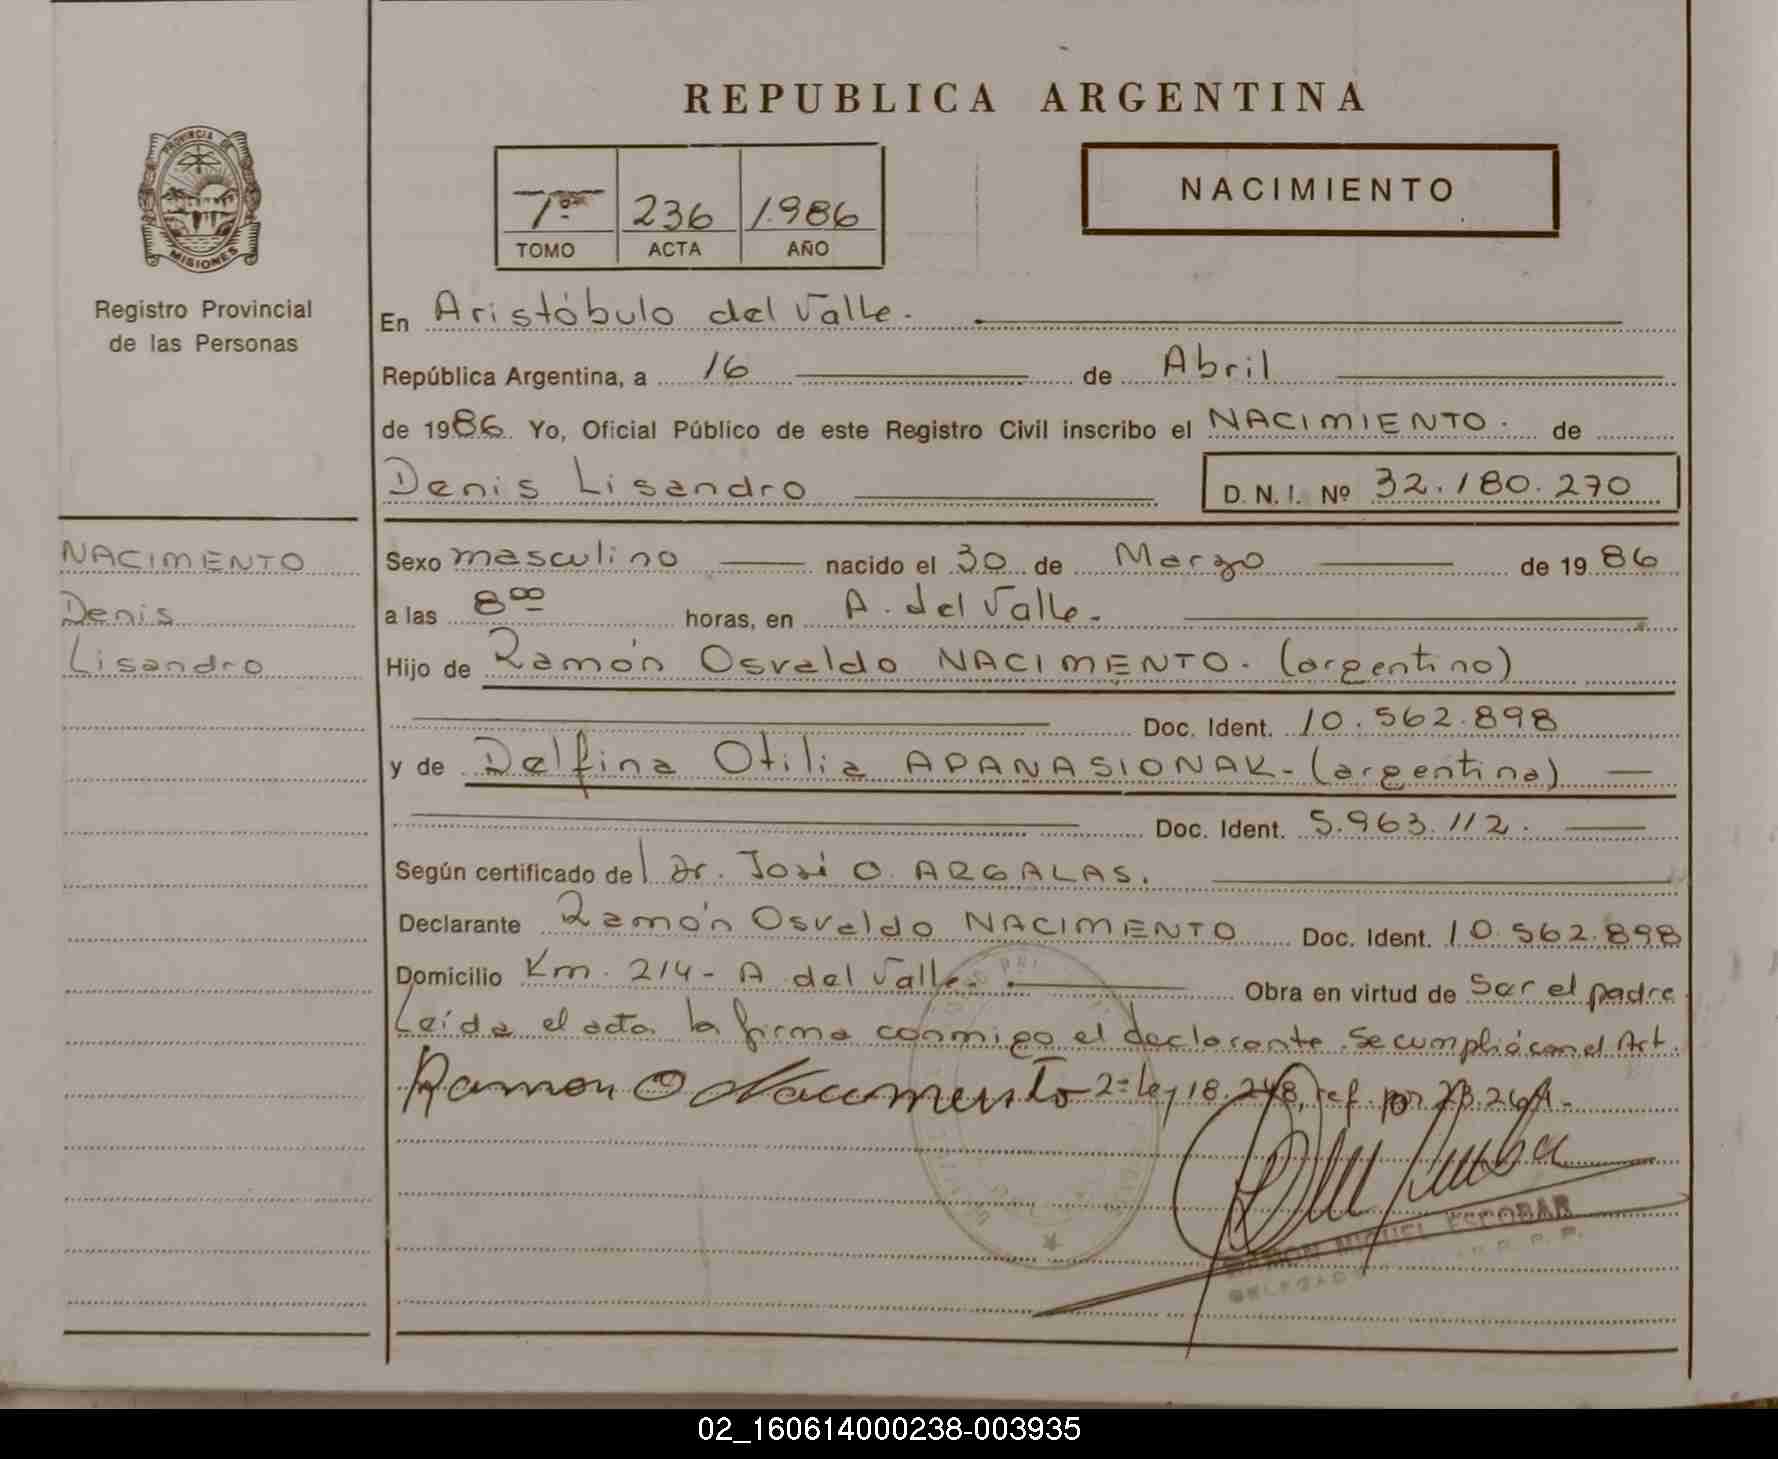 REPUBLICA ARGENTINA
PROVINCIA DE MISIONES
Registro Provincial
de las Personas
1º 236 1986
TOMO ACTA AÑO
NACIMIENTO
En Aristóbulo del Valle.
República Argentina, a 16 de Abril
de 1986. Yo, Oficial Público de este Registro Civil inscribo el NACIMIENTO. de
Denis Lisandro
D. N. I. Nº 32.180.270
NACIMENTO
Denis
Lisandro
Sexo masculino nacido el 30 de Marzo de 1986
a las 8 00 horas, en A. del Valle.
Hijo de Ramón Osvaldo NACIMENTO. (argentino)
Doc. Ident. 10.562.898
y de Delfina Otilia APANASIONAK - (argentina)
Doc. Ident. 5.963.112.
Según certificado del Dr. José O. ARGALAS.
Declarante Ramón Osvaldo NACIMENTO Doc. Ident. 10.562.898
Domicilio Km. 214 - A. del Valle. Obra en virtud de Ser el padre
Leída el acta la firma conmigo el declarante. Se cumplió con el Art.
Ramon O Nacimento 2º Ley 18.248, ref. por 23.264.-
RAMON MIGUEL ESCOBAR
DELEGADO R. P. P.
02_160614000238-003935